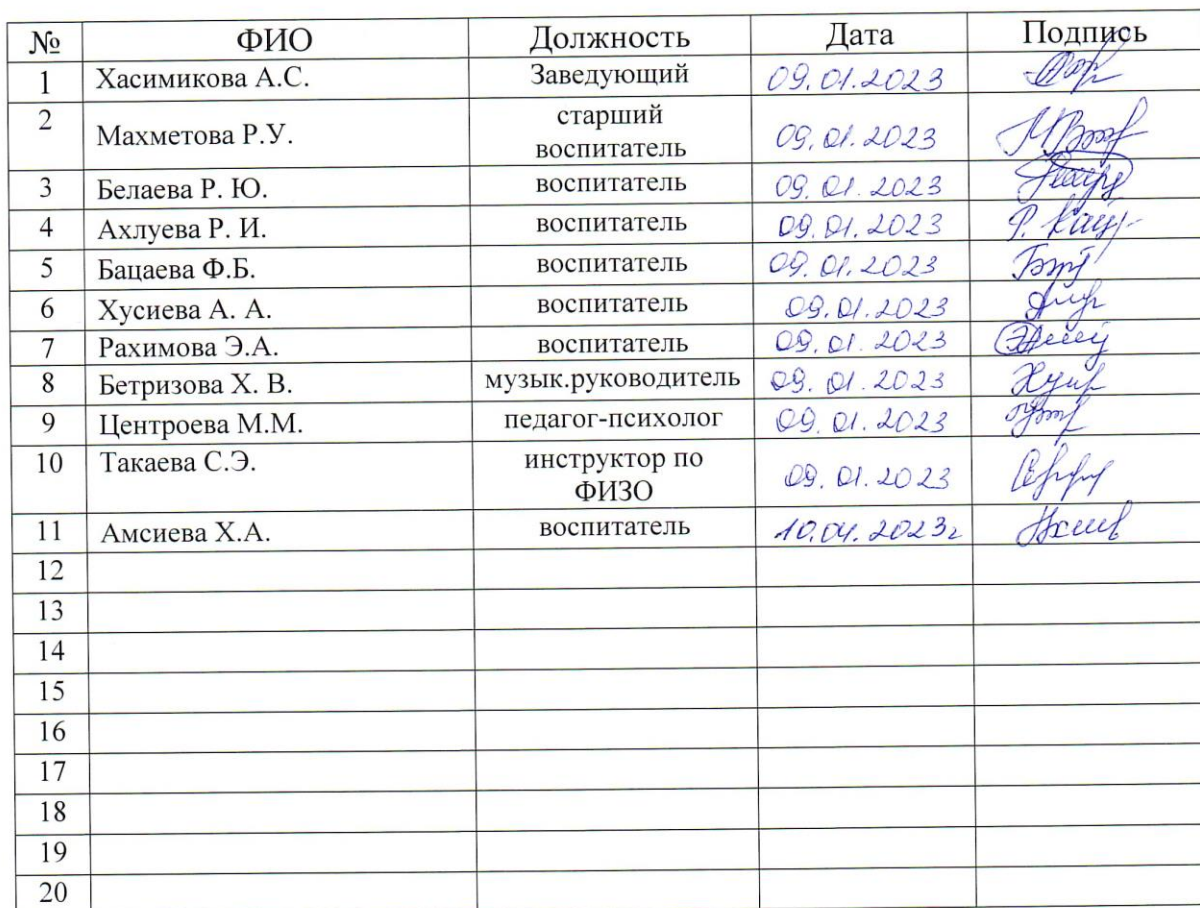 № ФИО Должность Дата Подпись
1 Хасимикова А.С. Заведующий 09.01.2023
2 Махметова Р.У. старший
воспитатель 09.01.2023
3 Белаева Р. Ю. воспитатель 09.01.2023
4 Ахлуева Р. И. воспитатель 09.01.2023
5 Бацаева Ф.Б. воспитатель 09.01.2023
6 Хусиева А. А. воспитатель 09.01.2023
7 Рахимова Э.А. воспитатель 09.01.2023
8 Бетризова Х. В. музык.руководитель 09.01.2023
9 Центроева М.М. педагог-психолог 09.01.2023
10 Такаева С.Э. инструктор по
ФИЗО 09.01.2023
11 Амсиева Х.А. воспитатель 10.04.2023г
12
13
14
15
16
17
18
19
20